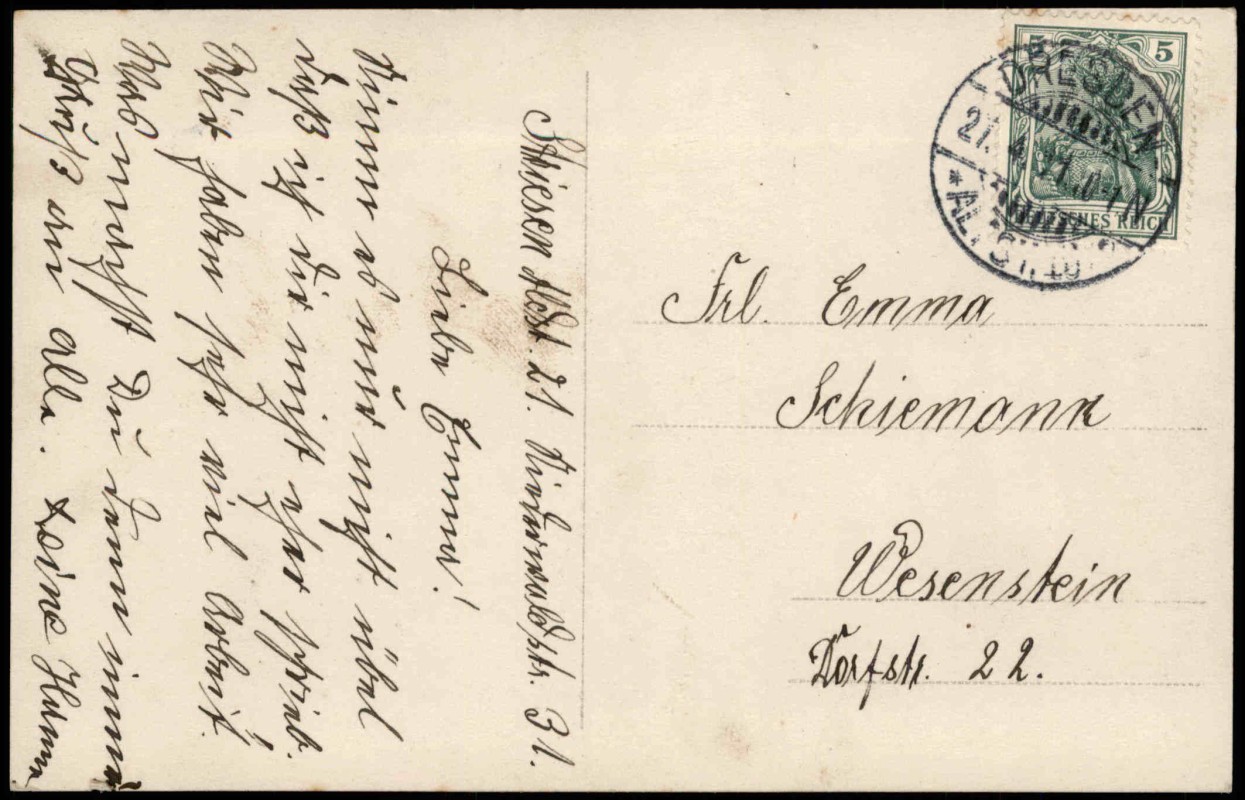 Striesen Abst. 21. Niederwaldstr. 31.
Liebe Emma!
Nimm es nur nicht übel
daß ich dir nicht eher schrieb.
Wir haben sehr viel Arbeit.
Was machst Du denn immer
Grüße an alle. Deine Hanna
5 5
DEUTSCHES REICH
DRESDEN
27. 4. 11. 0-1 N
* ALTST. 10
Frl. Emma
Schiemann
Wesenstein
Dorfstr. 22.